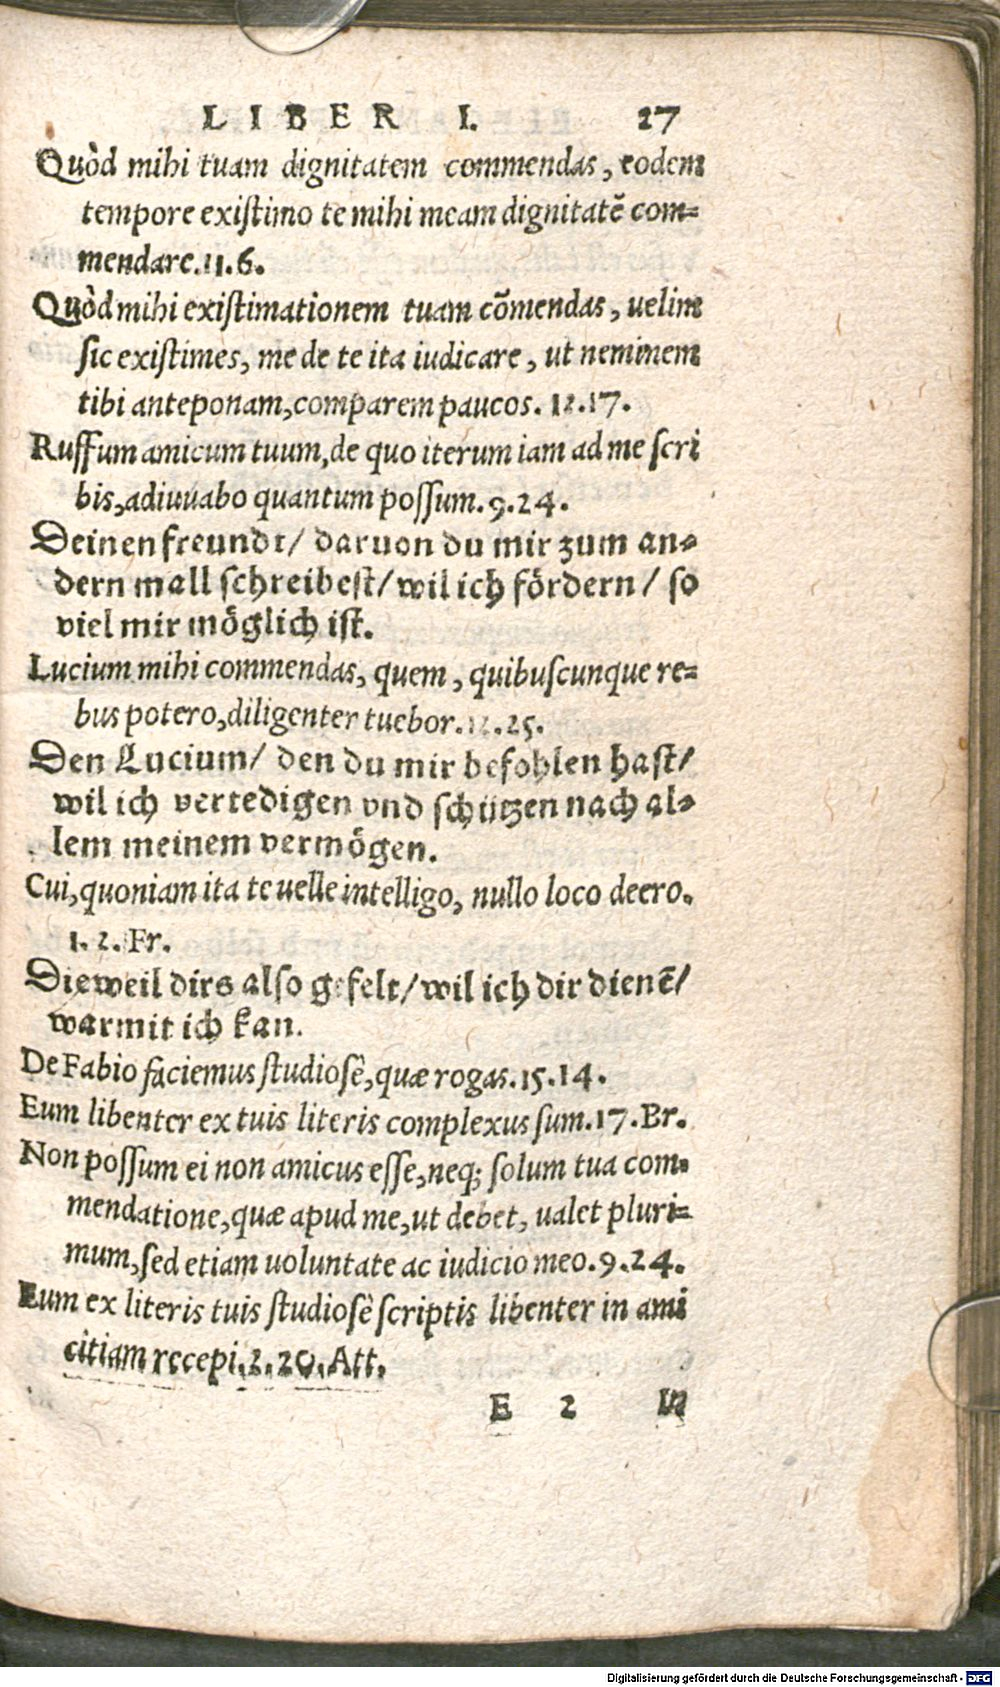 LIBER I. 27
Quòd mihi tuam dignitatem commendas, eodem
tempore existimo te mihi meam dignitatẽ com=
mendare. 11. 6.
Quòd mihi existimationem tuam cõmendas, uelim
sic existimes, me de te ita iudicare, ut neminem
tibi anteponam, comparem paucos. 12. 17.
Ruffum amicum tuum, de quo iterum iam ad me scri
bis, adiuuabo quantum possum. 9. 24.
Deinen freundt/ daruon du mir zum an=
dern mall schreibest/ wil ich fördern/ so
viel mir möglich ist.
Lucium mihi commendas, quem, quibuscunque re=
bus potero, diligenter tuebor. 12. 25.
Den Lucium/ den du mir befohlen hast/
wil ich vertedigen vnd schützen nach al=
lem meinem vermögen.
Cui, quoniam ita te uelle intelligo, nullo loco deero.
1. 2. Fr.
Dieweil dirs also gefelt/ wil ich dir dienẽ/
warmit ich kan.
De Fabio faciemus studiosè, quæ rogas. 15. 14.
Eum libenter ex tuis literis complexus sum. 17. Br.
Non possum ei non amicus esse, neq; solum tua com=
mendatione, quæ apud me, ut debet, ualet pluri=
mum, sed etiam uoluntate ac iudicio meo. 9. 24.
Eum ex literis tuis studiosè scriptis libenter in ami
citiam recepi. 2. 20. Att.
E 2
Digitalisierung gefördert durch die Deutsche Forschungsgemeinschaft - DFG